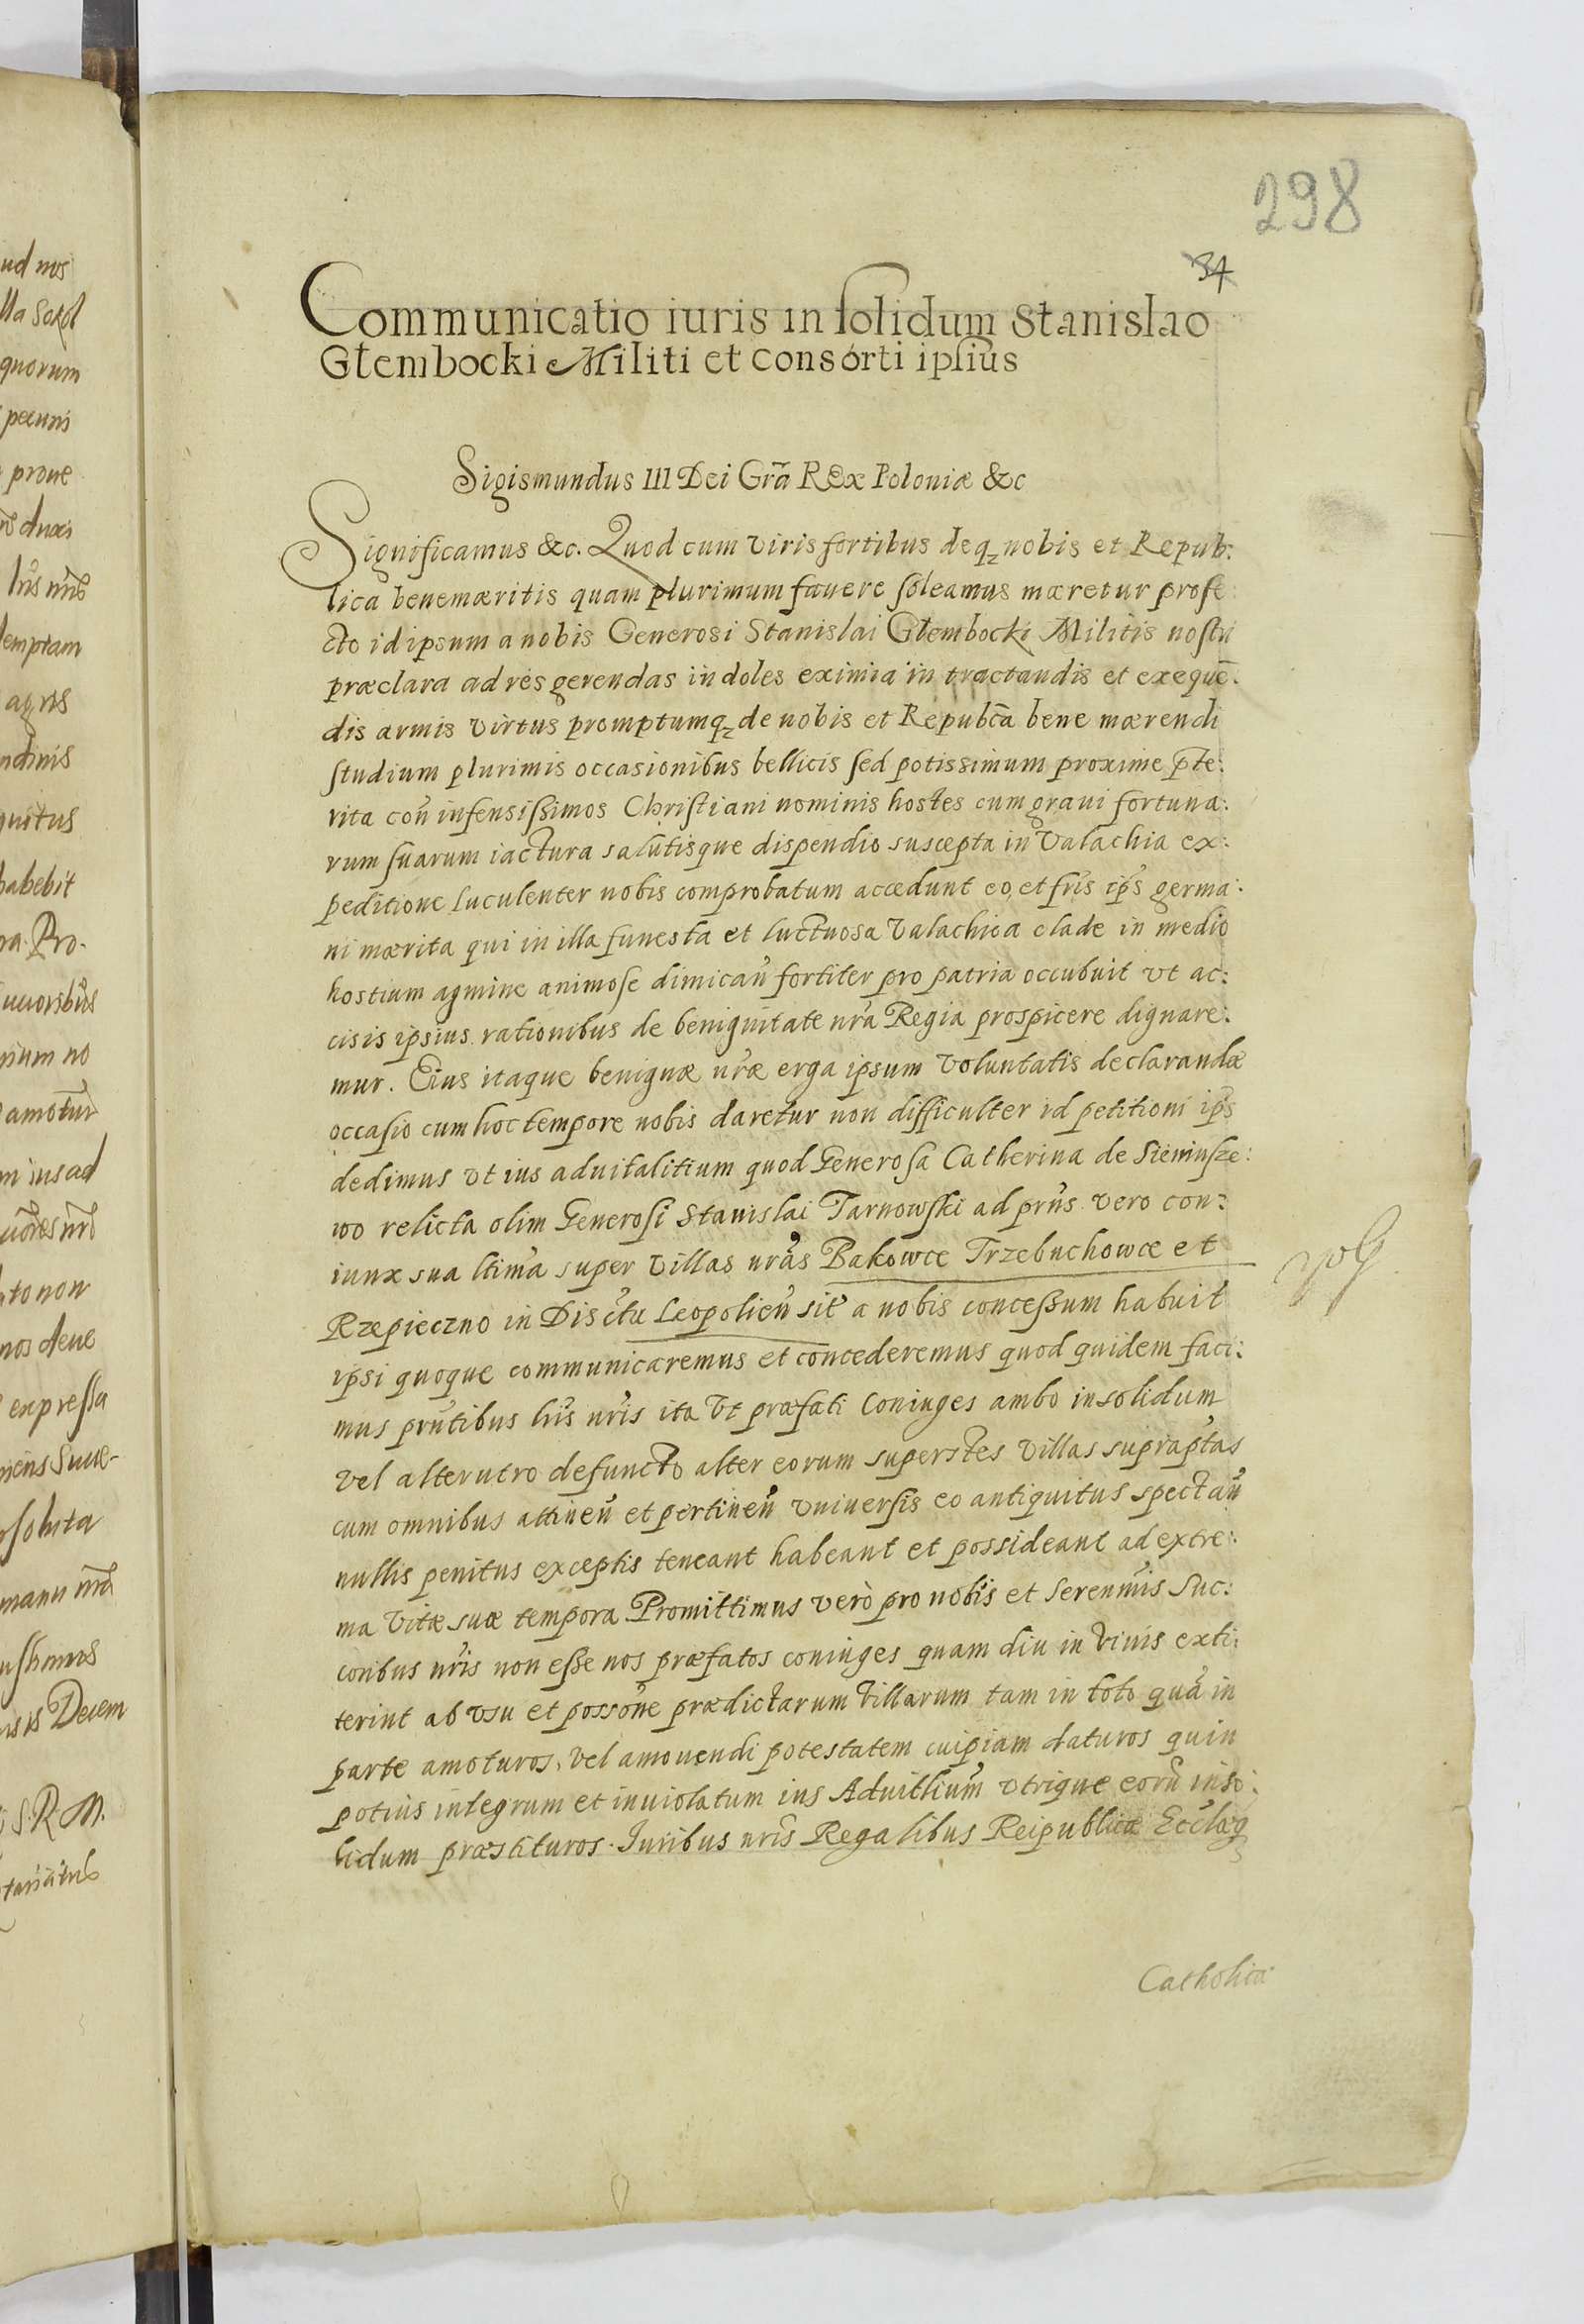 298
34
Communicatio iuris in solidum Stanislao
Głembocki Militi et consorti ipsius
Sigismundus III Dei Grã REx Poloniæ &c
Significamus &c. Quod cum viris fortibus deq nobis et Repub:
lica benemæritis quam plurimum favere soleamus mæretur profe:
cto id ipsum a nobis Generosi Stanislai Głembocki Militis nostri
præclara ad res gerendas indoles eximia in tractandis et exequẽ:
dis armis virtus promptumq de nobis et Repubcã bene mærendi
studium plurimis occasionibus bellicis sed potissimum proxime p̃te:
rita coñ infensissimos Christiani nominis hostes cum graui fortuna:
rum suarum iactura salutisque dispendio suscepta in Valachia ex:
peditione luculenter nobis comprobatum accedunt eo et fris ip̃s germa:
ni mærita qui in illa funesta et luctuosa Valachica clade in medio
hostium agmine animose dimicañ fortiter pro patria occubuit vt ac:
cisis ipsius rationibus de benignitate nrã Regia prospicere dignare:
mur. Eius itaque benignæ nræ erga ipsum voluntatis declarandæ
occasio cum hoc tempore nobis daretur non difficulter id petitioni ip̃s
dedimus vt ius aduitalitium quod Generosa Catherina de Sieniusze:
wo relicta olim Generosi Stanislai Tarnowski ad prñs vero con:
iunx sua ltima super villas nrãs Bakowce Trzebuchowce et
Rzepieczno in Disctu Leopolieñ sit a nobis concessum habuit
ipsi quoque communicaremus et concederemus quod quidem faci:
mus prñtibus lris nris ita vt præfati Coniuges ambo insolidum
vel alterutro defuncto alter eorum superstes villas suprap̃tas
cum omnibus attineñ et pertineñ vniuersis eo antiquitus spectañ
nullis penitus exceptis teneant habeant et possideant ad extre:
ma vitæ suæ tempora Promittimus verò pro nobis et Serenm̃is Suc:
coribus nris non esse nos præfatos coniuges quam diu in viuis exti:
terint ab vsu et possõne prædictarum villarum tam in toto quã in
parte amoturos, vel amouendi potestatem cuipiam daturos quin
potius integrum et inuiolatum ius Aduitlium vtrique eorũ inso:
lidum præstituros. Iuribus nris Regalibus Reipublicæ Ecclæq
Catholicæ